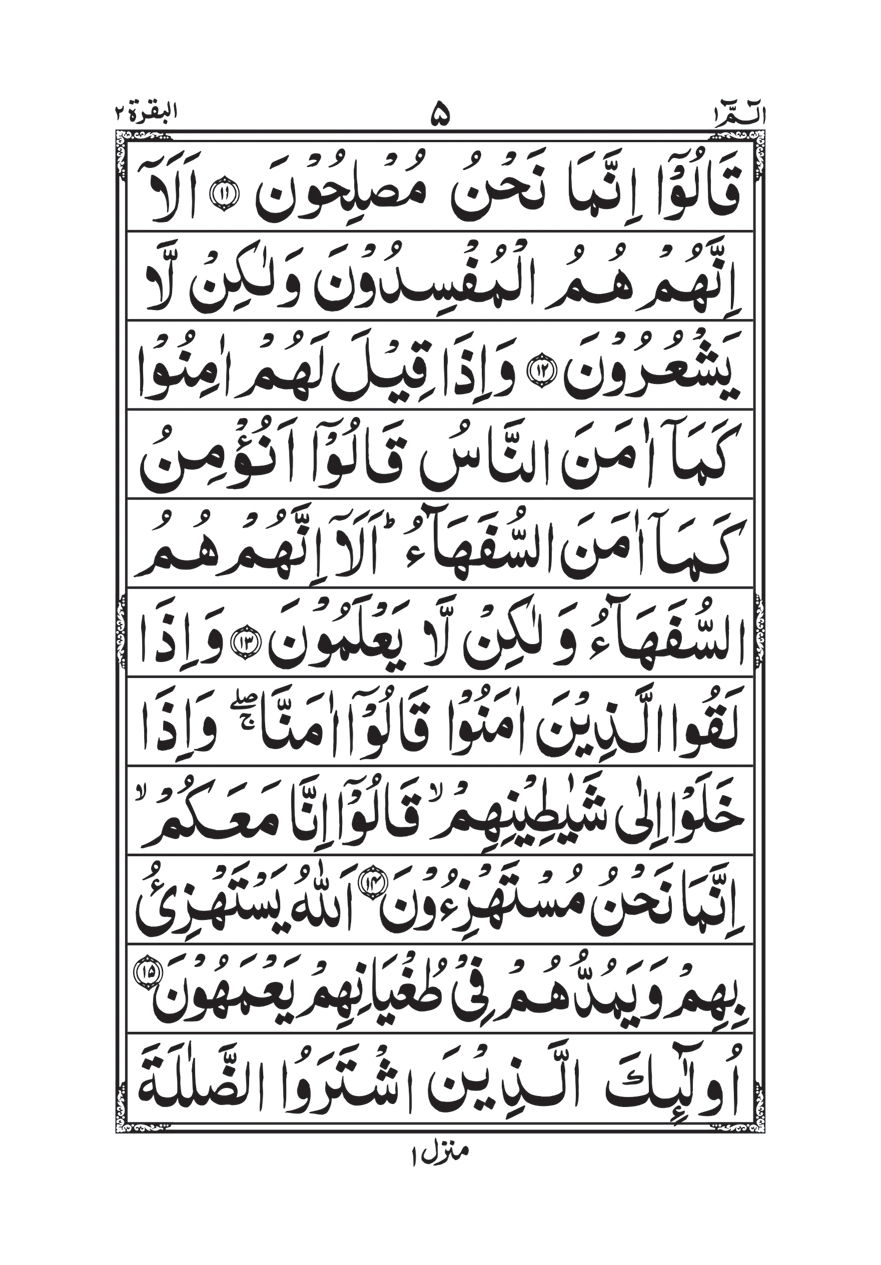 الٓمّٓ ١ ۵ البقرة ٢
قَالُوْٓا اِنَّمَا نَحْنُ مُصْلِحُوْنَ ﴿۱۱﴾ اَلَاۤ
اِنَّهُمْ هُمُ الْمُفْسِدُوْنَ وَلٰكِنْ لَّا
يَشْعُرُوْنَ ﴿۱۲﴾ وَاِذَا قِيْلَ لَهُمْ اٰمِنُوْا
كَمَاۤ اٰمَنَ النَّاسُ قَالُوْۤا اَنُؤْمِنُ
كَمَاۤ اٰمَنَ السُّفَهَآءُ ؕ اَلَاۤ اِنَّهُمْ هُمُ
السُّفَهَآءُ وَلٰكِنْ لَّا يَعْلَمُوْنَ ﴿۱۳﴾ وَاِذَا
لَقُوا الَّذِيْنَ اٰمَنُوْا قَالُوْۤا اٰمَنَّا ۖۚ وَاِذَا
خَلَوْا اِلٰى شَيٰطِيْنِهِمْ ۙ قَالُوْۤا اِنَّا مَعَكُمْ ۙ
اِنَّمَا نَحْنُ مُسْتَهْزِءُوْنَ ﴿۱۴﴾ اَللّٰهُ يَسْتَهْزِئُ
بِهِمْ وَيَمُدُّهُمْ فِيْ طُغْيَانِهِمْ يَعْمَهُوْنَ ﴿۱۵﴾
اُولٰٓئِكَ الَّذِيْنَ اشْتَرَوُا الضَّلٰلَةَ
منزل ١